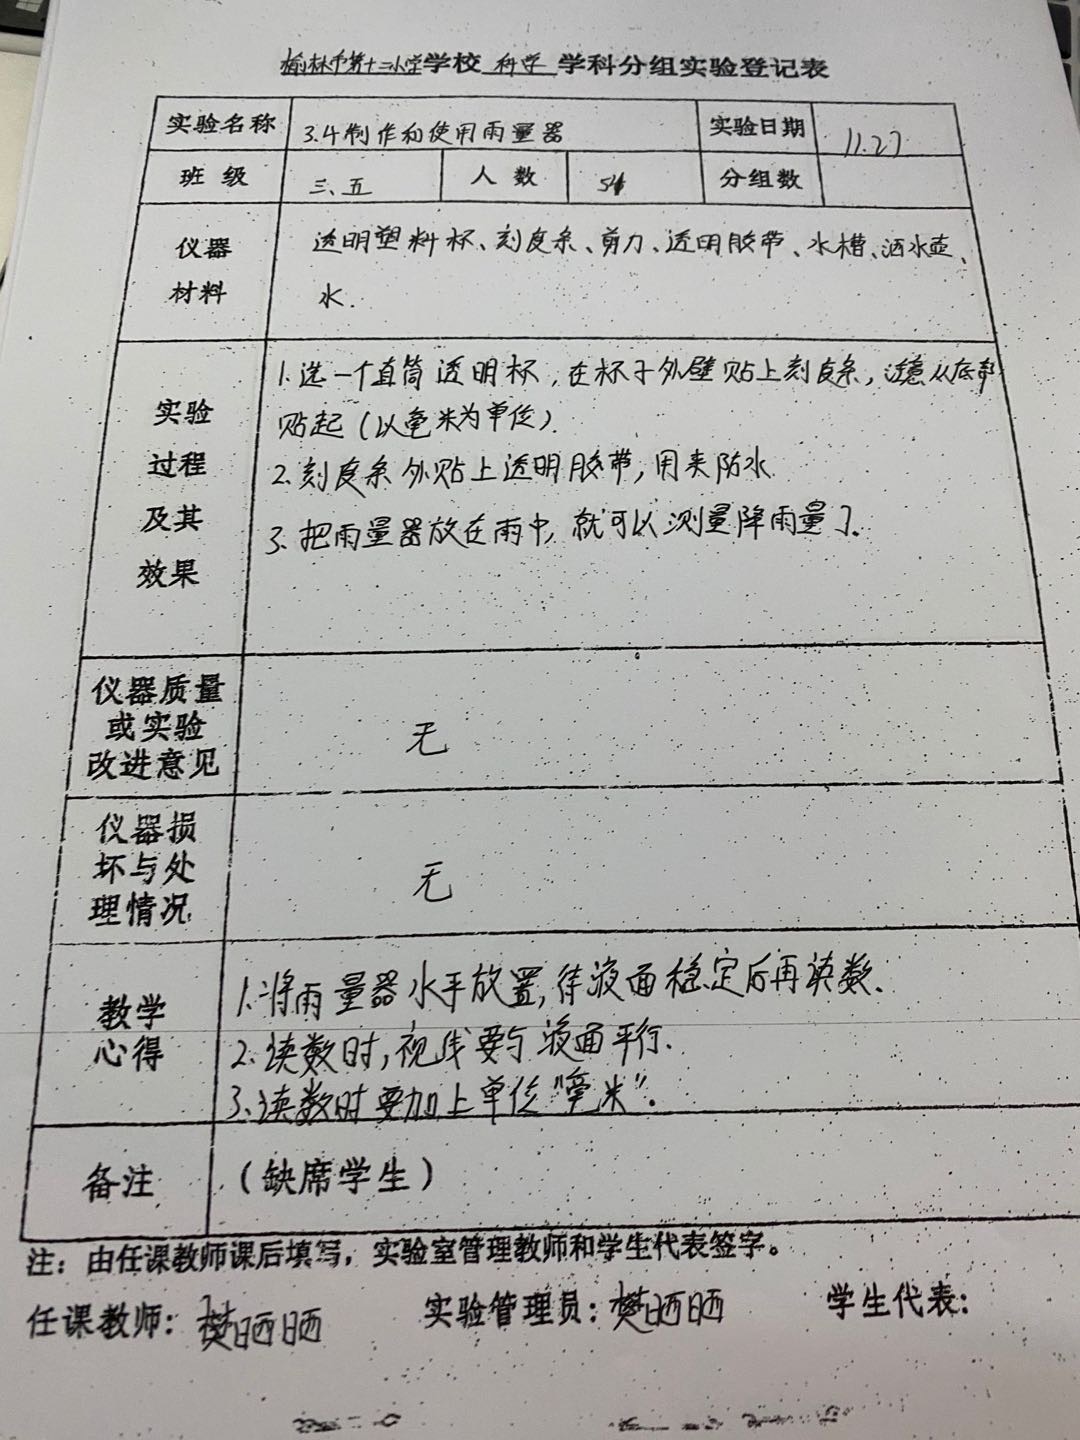 榆林市第十二小学学校 科学 学科分组实验登记表
实验名称 3.4制作和使用雨量器 实验日期 11.27
班级 三、五 人数 分组数
仪器材料 透明塑料杯、刻度条、剪刀、透明胶带、水槽、洒水壶、
水.
实验过程及其效果 1.选一个直筒透明杯,在杯子外壁贴上刻度条,注意从底部
贴起(以毫米为单位).
2.刻度条外贴上透明胶带,用来防水
3.把雨量器放在雨中,就可以测量降雨量了.
仪器质量或实验改进意见 无
仪器损坏与处理情况 无
教学心得 1.将雨量器水平放置,待液面稳定后再读数.
2.读数时,视线要与液面平行.
3.读数时要加上单位"毫米".
备注 (缺席学生)
注:由任课教师课后填写,实验室管理教师和学生代表签字。
任课教师:樊晒晒 实验管理员:樊晒晒 学生代表: